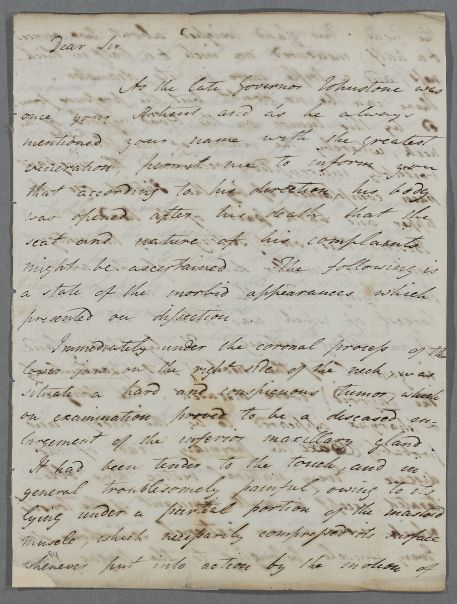 Dear Sir
As the late Governor Johnstone was
once your Patient and as he always
mentioned your name with the greatest
veneration, permit me to inform you
that according to his direction his body
was opened after his death that the
seat and nature of his complaints
might be ascertained. The following is
a state of the morbid appearances which
presented on dissection.
Immediately under the coronal process of the
lower jaw on the right side of the neck, was
situate a hard and conspicuous tumor, which
on examination proved to be a diseased en-
largement of the inferior maxillary gland.
It had been tender to the touch, and in
general troublesomely painful, owing to its
lying under a partial portion of the mastoid
muscle which necessarily compressed its surface
whenever put into action by the motion of